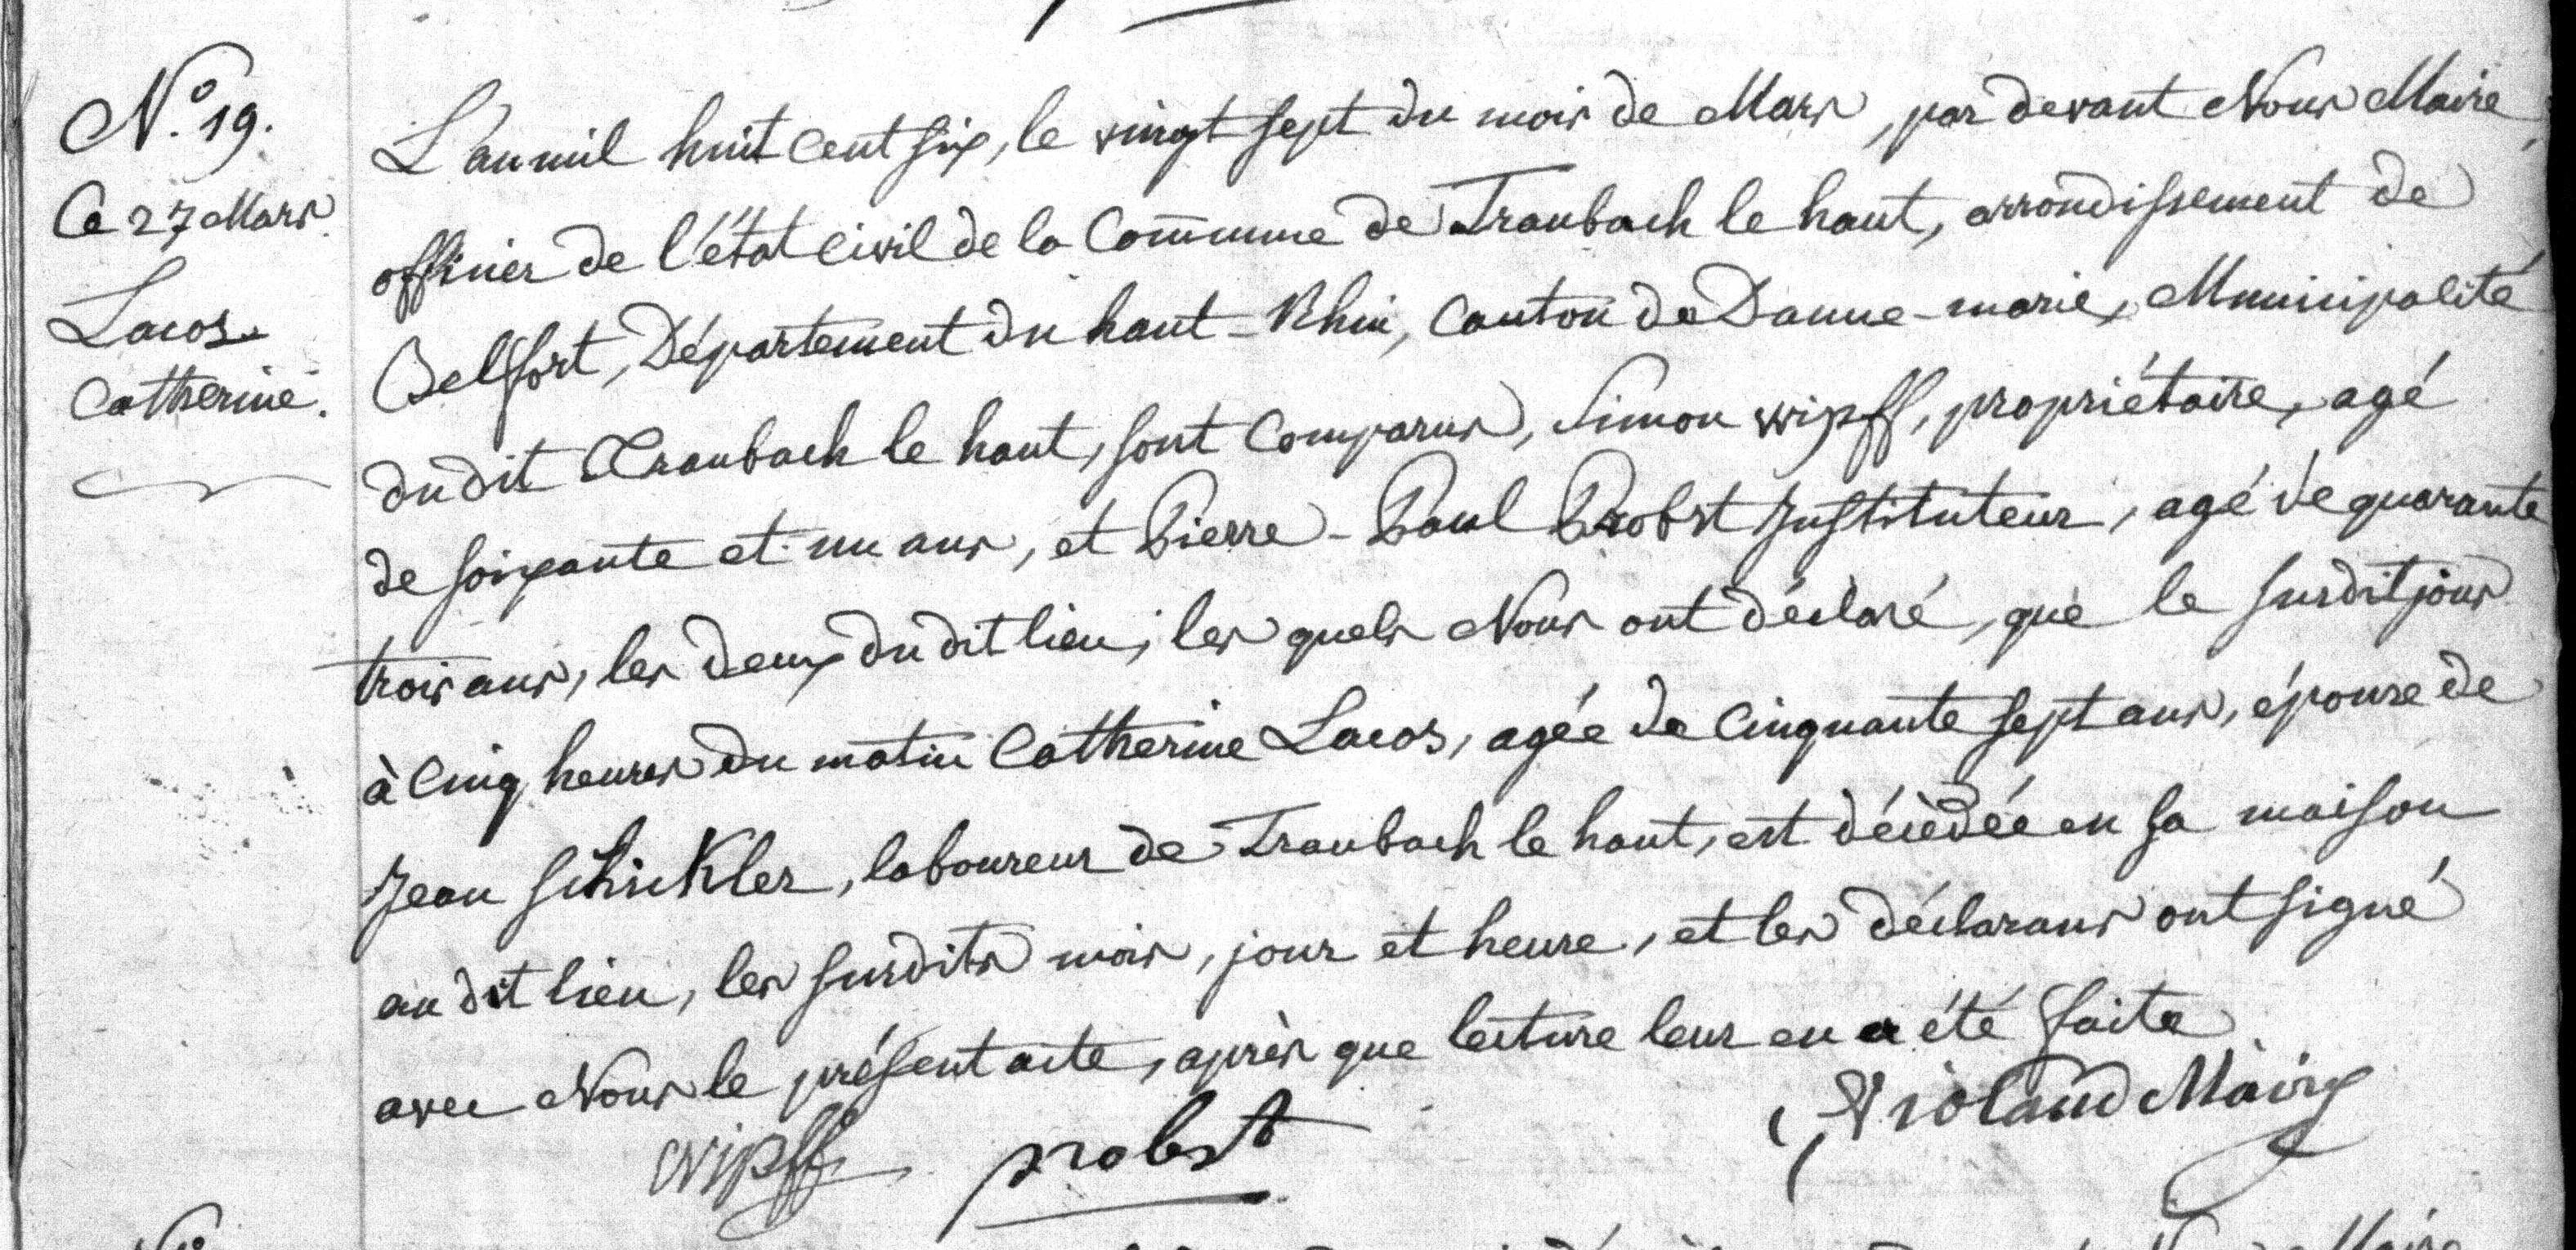 N.° 19.
Ce 27 Mars
Lacos
Catherine.
L'an mil huit cent six, le vingt sept du mois de Mars, par devant Nous Maire,
officier de l'état civil de la Com̄mune de Traubach le haut, arrondissement de
Belfort, Département du haut-Rhin, Canton de Danne-marie, Municipalité
du dit Traubach le haut, sont comparus, Simon Wipff, propriétaire, agé
de soixante et un ans, et Pierre-Paul Probst Instituteur, agé de quarante
trois ans, les deux du dit lieu; les quels Nous ont déclaré, que le susdit jour
à cinq heures du matin Catherine Lacos, agée de cinquante sept ans, épouse de
Jean Schickler, laboureur de Traubach le haut, est décèdée en sa maison
au dit lieu, les susdits mois, jour et heure, et les déclarans ont signé
avec Nous le présent acte, après que lecture leur en a été faite
Wipff probst Violand Maire
N°
Maire